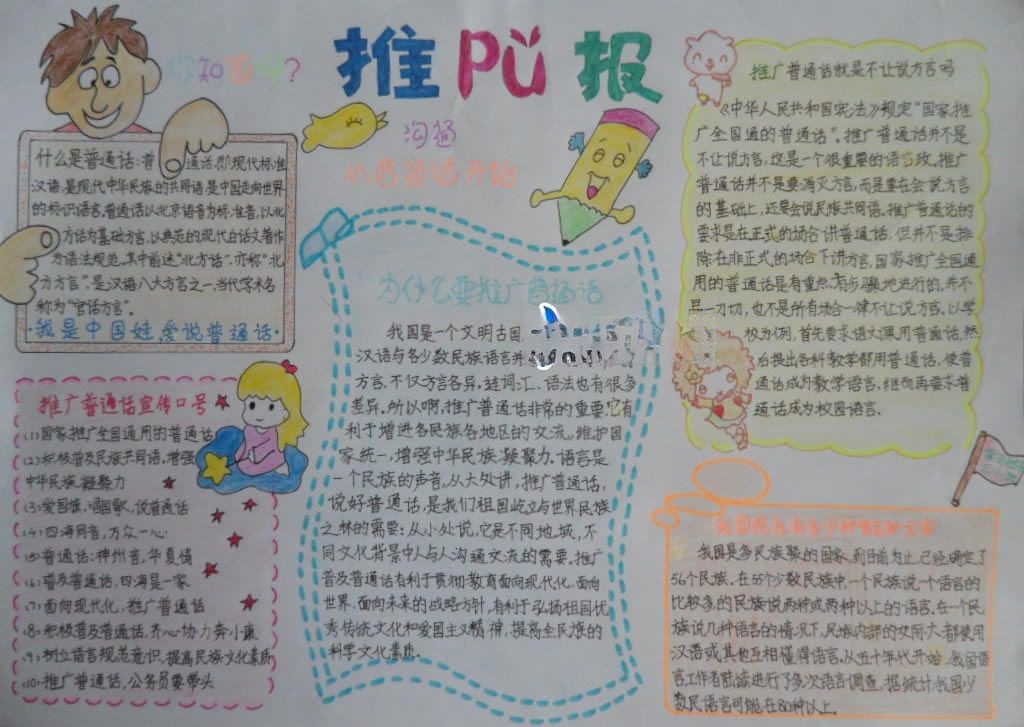 推PŬ报
你知道吗?
沟通
从普通话开始
什么是普通话:普通话,即现代标准
汉语,是现代中华民族的共同语,是中国走向世界
的标识语言,普通话以北京语音为标准音,以北
方话为基础方言,以典范的现代白话文著作
为语法规范。其中前述"北方话",亦称"北
方方言",是汉语八大方言之一,当代学术名
称为"官话方言"。
·我是中国娃,爱说普通话·
推广普通话宣传口号
(1)国家推广全国通用的普通话
(2)积极普及民族共同语,增强
中华民族凝聚力
(3)爱国旗,唱国歌,说普通话
(4)四海同音,万众一心
(5)普通话:神州音,华夏情
(6)普及普通话,四海是一家
(7)面向现代化,推广普通话
(8)积极普及普通话,齐心协力奔小康
(9)树立语言规范意识,提高民族文化素质
(10)推广普通话,公务员要带头
为什么要推广普通话
我国是一个文明古国
汉语与各少数民族语言并
方言,不仅方言各异,连词汇、语法也有很多
差异。所以啊,推广普通话非常的重要,它有
利于增进各民族各地区的交流,维护国
家统一,增强中华民族凝聚力。语言是
一个民族的声音,从大处讲,推广普通话,
说好普通话,是我们祖国屹立与世界民族
之林的需要;从小处说,它是不同地域,不
同文化背景中人与人沟通交流的需要。推广
普及普通话有利于贯彻教育面向现代化,面向
世界,面向未来的战略方针,有利于弘扬祖国优
秀传统文化和爱国主义精神,提高全民族的
科学文化素质。
推广普通话就是不让说方言吗
《中华人民共和国宪法》规定"国家推
广全国通的普通话"。推广普通话并不是
不让说方言,这是一个很重要的语言政。推广
普通话并不是要消灭方言,而是要在会说方言
的基础上,还要会说民族共同语。推广普通话的
要求是在正式的场合讲普通话,但并不是排
除在非正式的场合下讲方言,国家推广全国通
用的普通话是有重点,有步骤地进行的,并不
是一刀切,也不是所有场合一律不让说方言。以学
校为例,首先要求语文课用普通话,然
后提出各种教学都用普通话,使普
通话成为教学语言,继而再要求普
通话成为校园语言。
我国是多民族聚的国家,到目前为止,已经确定了
56个民族。在55个少数民族中,一个民族说一个语言的
比较多的民族说两种或两种以上的语言。在一个民
族说几种语言的情况下,民族内部的交际大都使用
汉语或其他互相懂得语言。从五十年代开始,我国语
言工作者陆续进行了多次语言调查,据统计我国少
数民语言可能在80种以上。